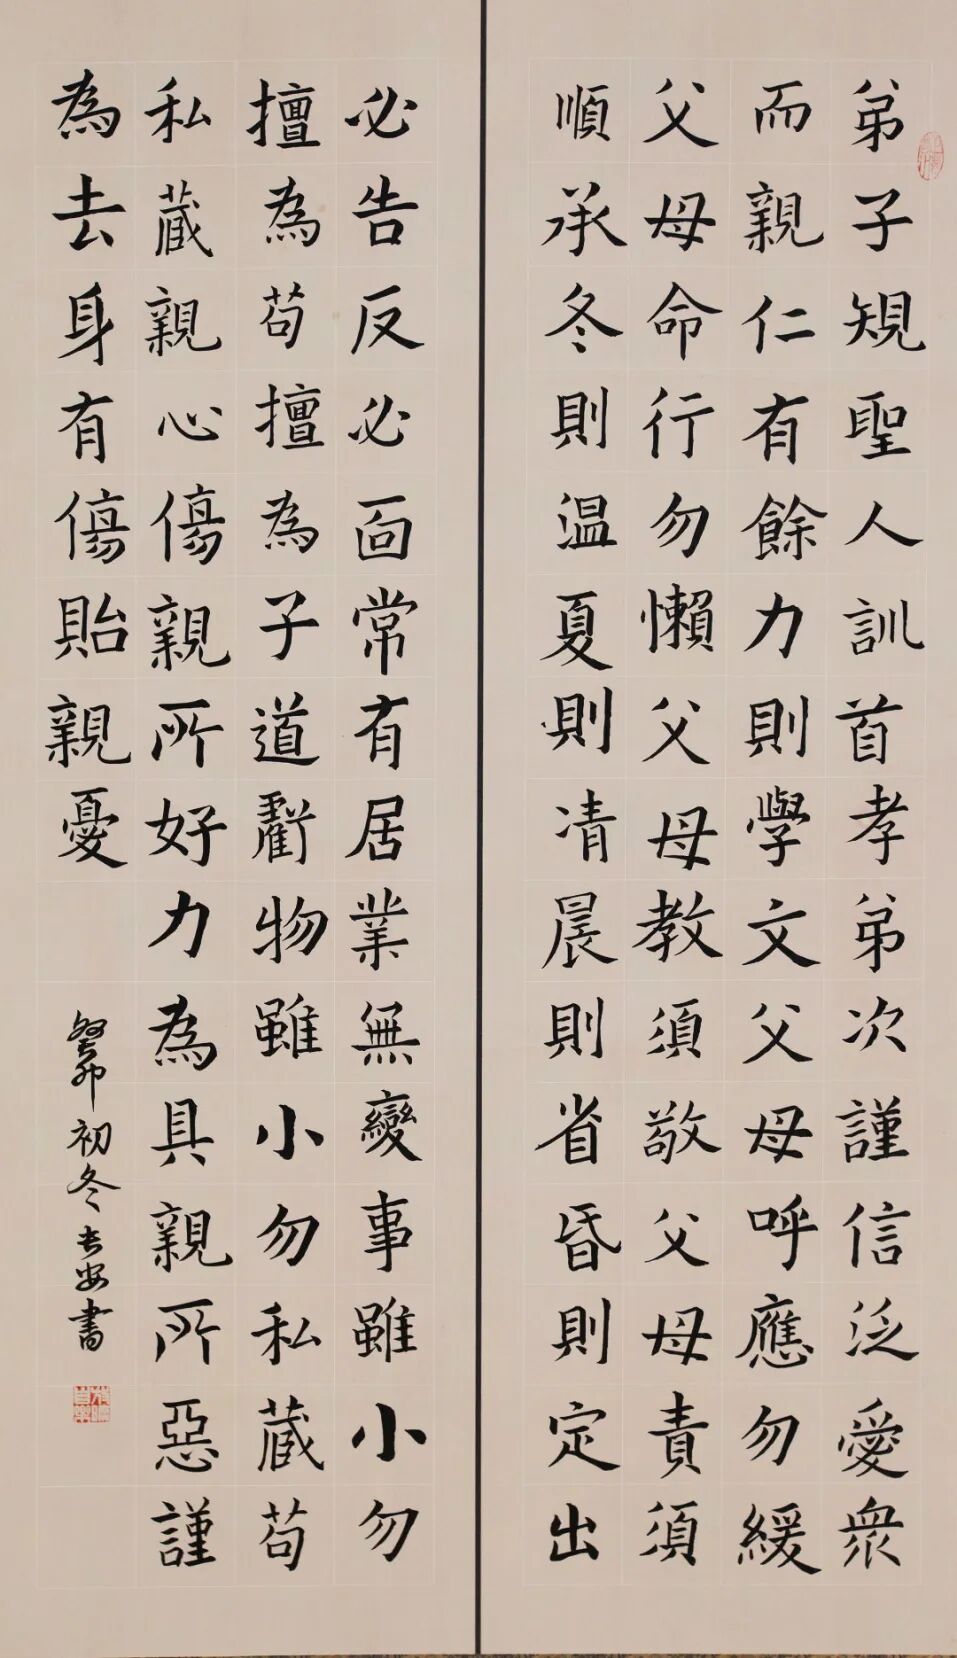 弟子規聖人訓首孝弟次謹信泛愛衆
而親仁有餘力則學文父母呼應勿緩
父母命行勿懶父母教須敬父母責須
順承冬則温夏則凊晨則省昏則定出
必告反必面常有居業無變事雖小勿
擅為苟擅為子道虧物雖小勿私蔵苟
私蔵親心傷親所好力為具親所惡謹
為去身有傷貽親憂
癸卯初冬去安書